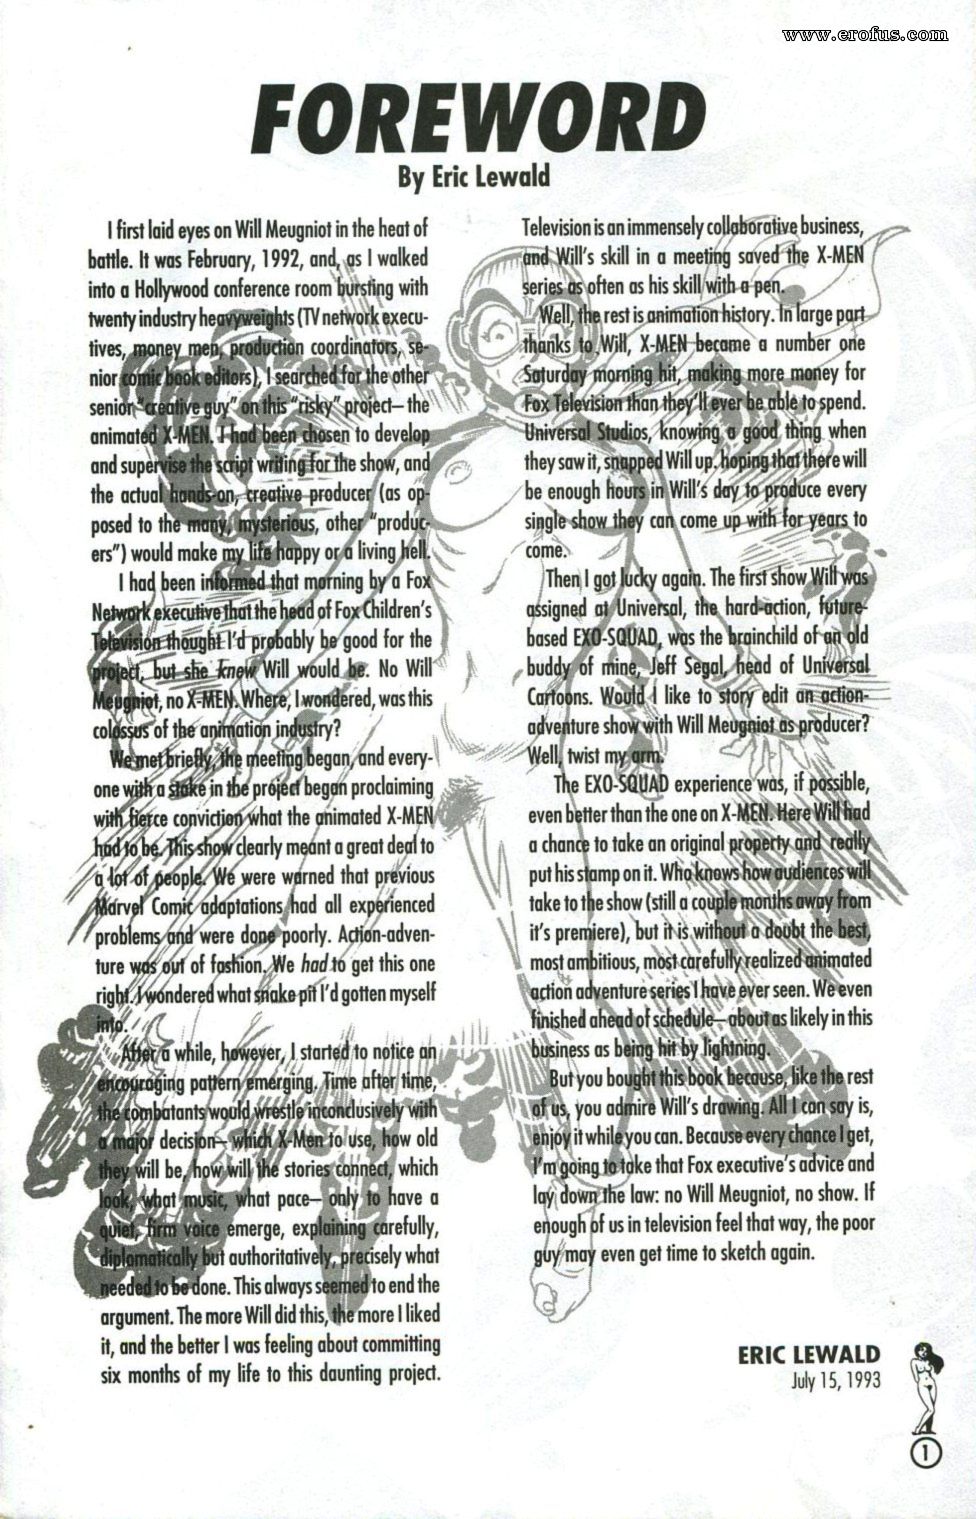 www.erofus.com
FOREWORD
By Eric Lewald
I first laid eyes on Will Meugniot in the heat of
battle. It was February, 1992, and, as I walked
into a Hollywood conference room bursting with
twenty industry heavyweights (TV network execu-
tives, money men, production coordinators, se-
nior comic book editors), I searched for the other
senior "creative guy" on this "risky" project— the
animated X-MEN. I had been chosen to develop
and supervise the script writing for the show, and
the actual hands-on, creative producer (as op-
posed to the many, mysterious, other "produc-
ers") would make my life happy or a living hell.
I had been informed that morning by a Fox
Network executive that the head of Fox Children's
Television thought I'd probably be good for the
project, but she knew Will would be. No Will
Meugniot, no X-MEN. Where, I wondered, was this
colossus of the animation industry?
We met briefly, the meeting began, and every-
one with a stake in the project began proclaiming
with fierce conviction what the animated X-MEN
had to be. This show clearly meant a great deal to
a lot of people. We were warned that previous
Marvel Comic adaptations had all experienced
problems and were done poorly. Action-adven-
ture was out of fashion. We had to get this one
right. I wondered what snake-pit I'd gotten myself
into.
After a while, however, I started to notice an
encouraging pattern emerging. Time after time,
the combatants would wrestle inconclusively with
a major decision— which X-Men to use, how old
they will be, how will the stories connect, which
look, what music, what pace— only to have a
quiet, firm voice emerge, explaining carefully,
diplomatically but authoritatively, precisely what
needed to be done. This always seemed to end the
argument. The more Will did this, the more I liked
it, and the better I was feeling about committing
six months of my life to this daunting project.
Television is an immensely collaborative business,
and Will's skill in a meeting saved the X-MEN
series as often as his skill with a pen.
Well, the rest is animation history. In large part
thanks to Will, X-MEN became a number one
Saturday morning hit, making more money for
Fox Television than they'll ever be able to spend.
Universal Studios, knowing a good thing when
they saw it, snapped Will up, hoping that there will
be enough hours in Will's day to produce every
single show they can come up with for years to
come.
Then I got lucky again. The first show Will was
assigned at Universal, the hard-action, future-
based EXO-SQUAD, was the brainchild of an old
buddy of mine, Jeff Segal, head of Universal
Cartoons. Would I like to story edit an action-
adventure show with Will Meugniot as producer?
Well, twist my arm.
The EXO-SQUAD experience was, if possible,
even better than the one on X-MEN. Here Will had
a chance to take an original property and really
put his stamp on it. Who knows how audiences will
take to the show (still a couple months away from
it's premiere), but it is without a doubt the best,
most ambitious, most carefully realized animated
action adventure series I have ever seen. We even
finished ahead of schedule—about as likely in this
business as being hit by lightning.
But you bought this book because, like the rest
of us, you admire Will's drawing. All I can say is,
enjoy it while you can. Because every chance I get,
I'm going to take that Fox executive's advice and
lay down the law: no Will Meugniot, no show. If
enough of us in television feel that way, the poor
guy may even get time to sketch again.
ERIC LEWALD
July 15, 1993
1